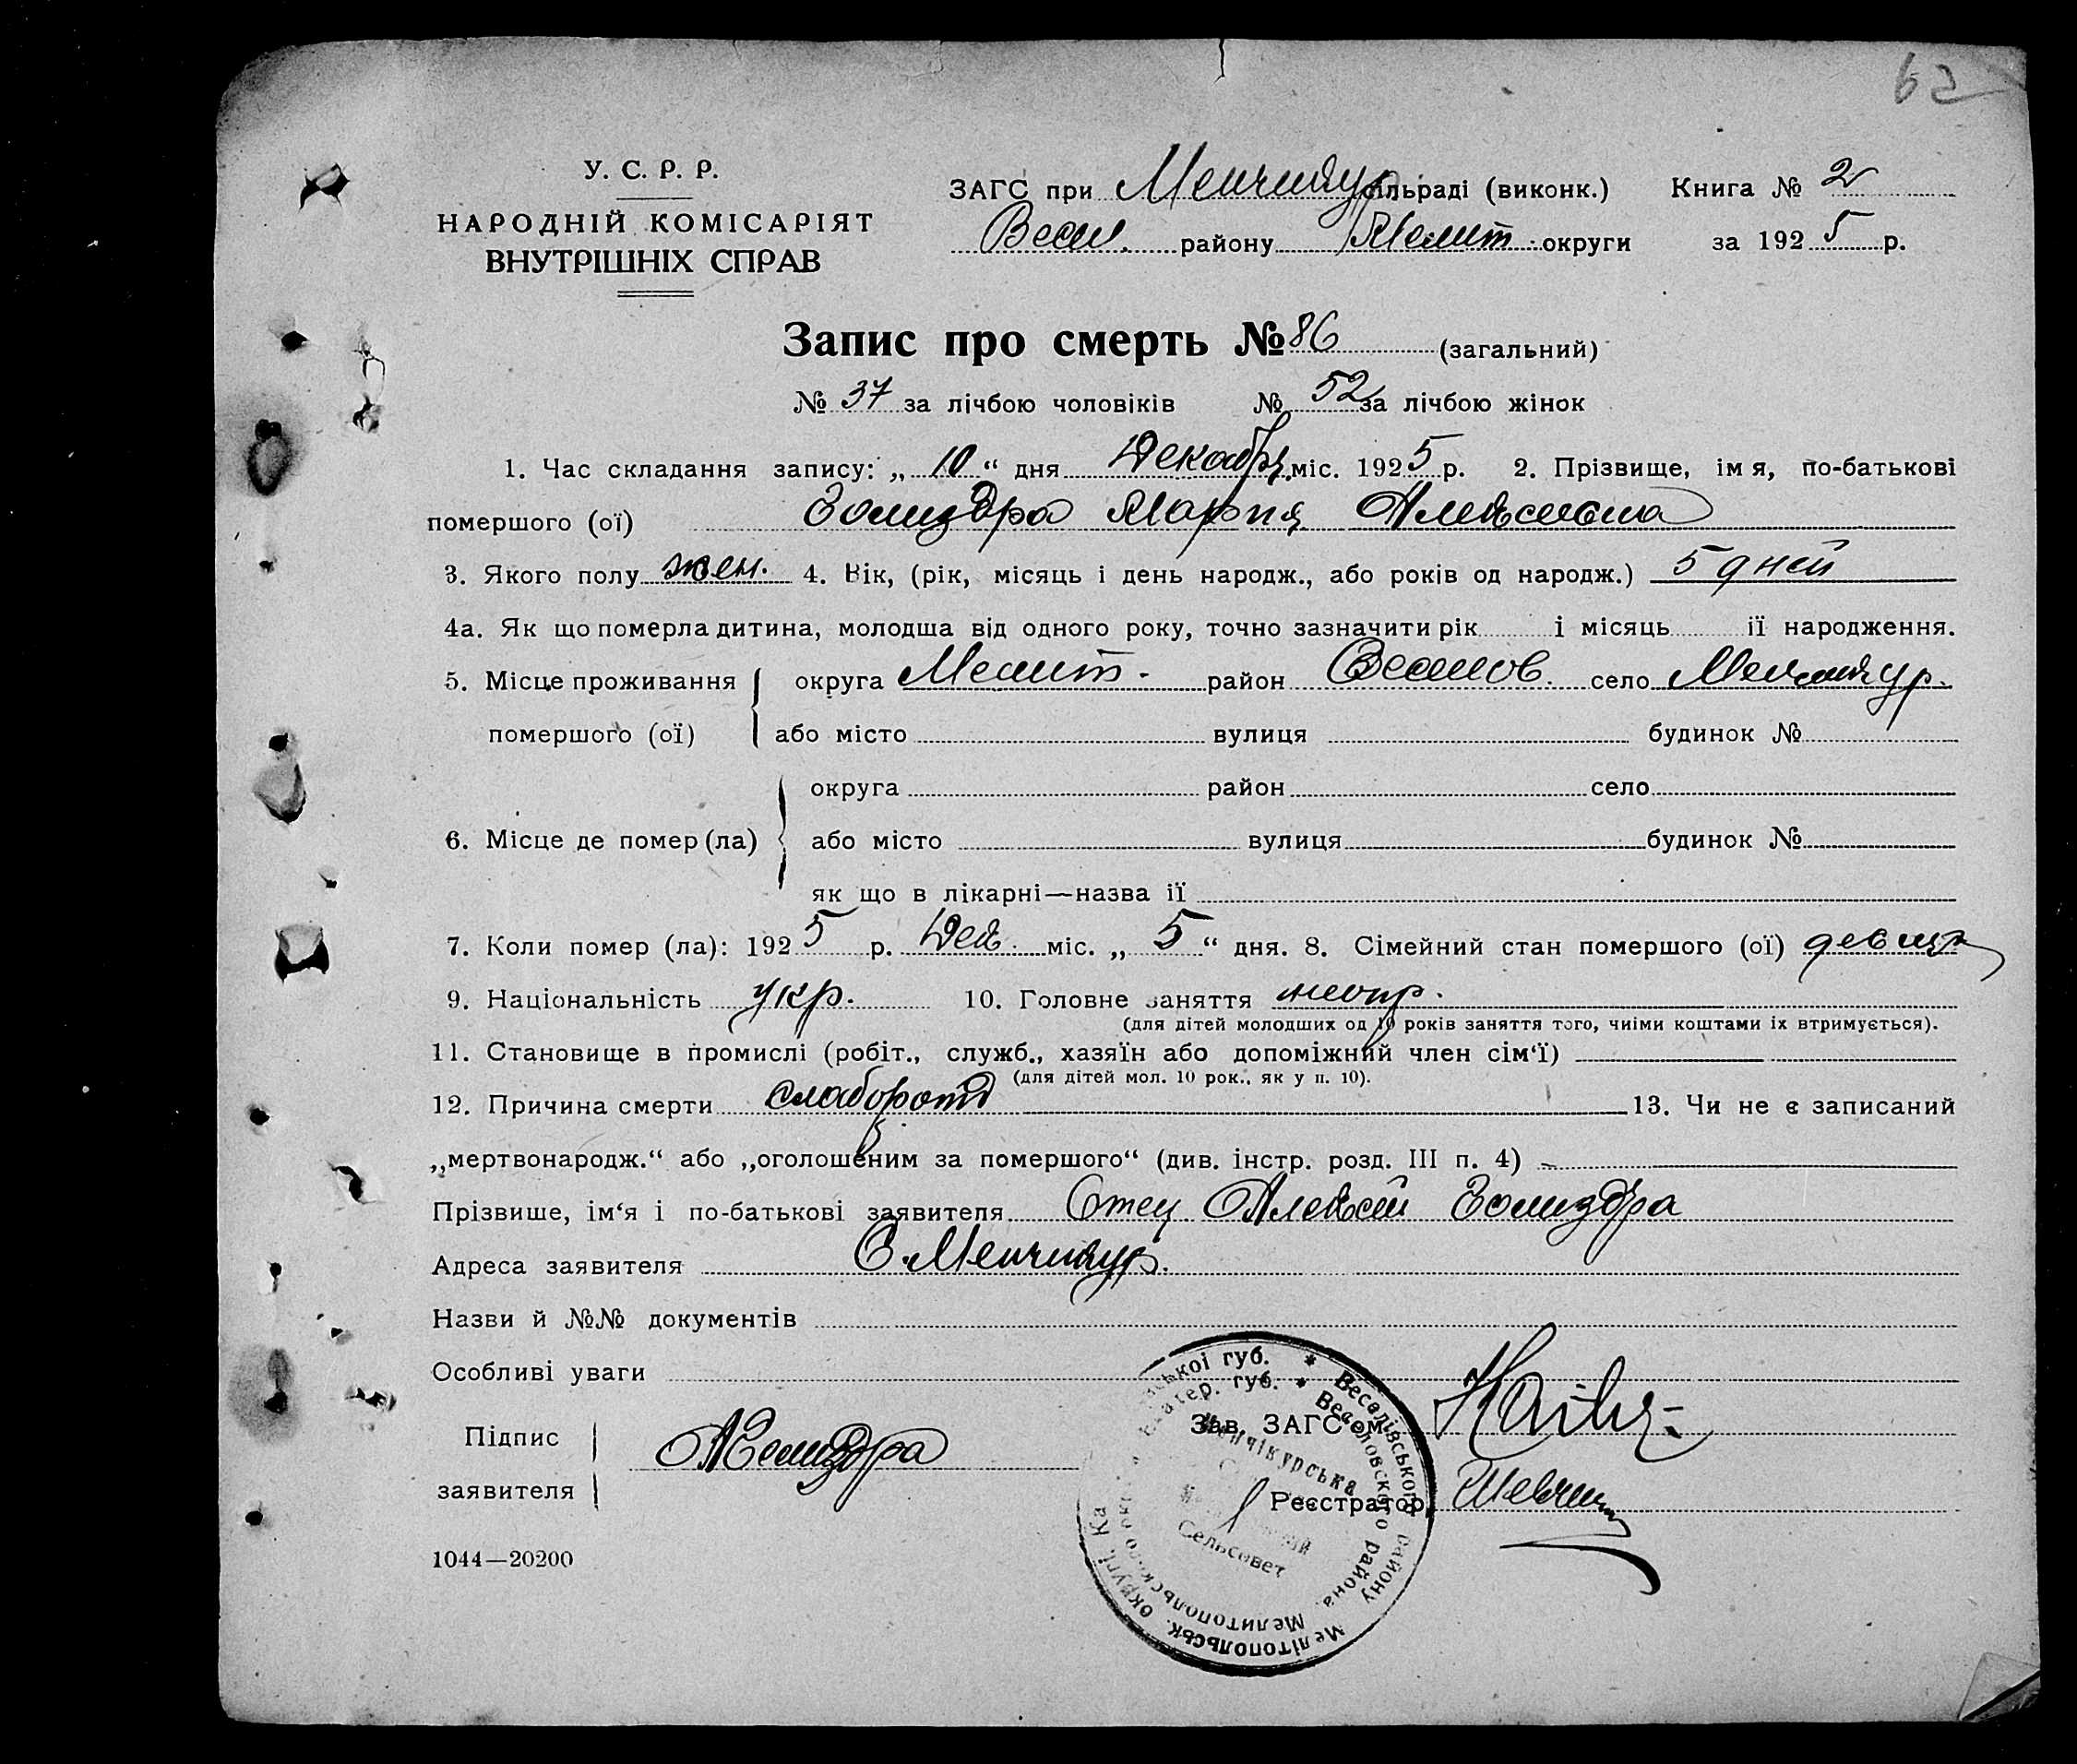 62
У. С. Р. Р.
НАРОДНІЙ КОМІСАРІЯТ
ВНУТРІШНІХ СПРАВ
ЗАГС при Менчикур сільраді (виконк.) Книга № 2
Весел. району Мелит. округи за 1925 р.
Запис про смерть № 86 (загальний)
№ 37 за лічбою чоловіків № 52 за лічбою жінок
1. Час складання запису: „10“ дня Декабря міс. 1925 р. 2. Прізвище, імя, по-батькові
помершого (ої) Мария Алексеевна
3. Якого полу жен. 4. Вік, (рік, місяць і день народж., або років од народж.) 5 дней
4а. Як що померла дитина, молодша від одного року, точно зазначити рік і місяць її народження.
5. Місце проживання округа Мелит. район Веселов. село Менчикур.
помершого (ої) або місто вулиця будинок №
округа район село
6. Місце де помер(ла) або місто вулиця будинок №
як що в лікарні—назва її
7. Коли помер (ла): 1925 р. Дек. міс. „5“ дня. 8. Сімейний стан помершого (ої) девица
9. Національність укр. 10. Головне заняття
(для дітей молодших од 10 років заняття того, чиїми коштами їх втримується).
11. Становище в промислі (робіт., служб., хазяїн або допоміжний член сім‘ї)
(для дітей мол. 10 рок., як у п. 10).
12. Причина смерти 13. Чи не є записаний
„мертвонародж.“ або „оголошеним за помершого“ (див. інстр. розд. III п. 4)
Прізвише, ім‘я і по-батькові заявителя Отец Алексей
Адреса заявителя С. Менчикур.
Назви й №№ документів
Особливі уваги
Підпис
заявителя
Зав. ЗАГС‘ом
Реєстратор
Веселівського району Мелітопольськ. округі, губ.
Веселовского района, Мелитопольского губ.
Менчікурська
Сельсовет
1044—20200